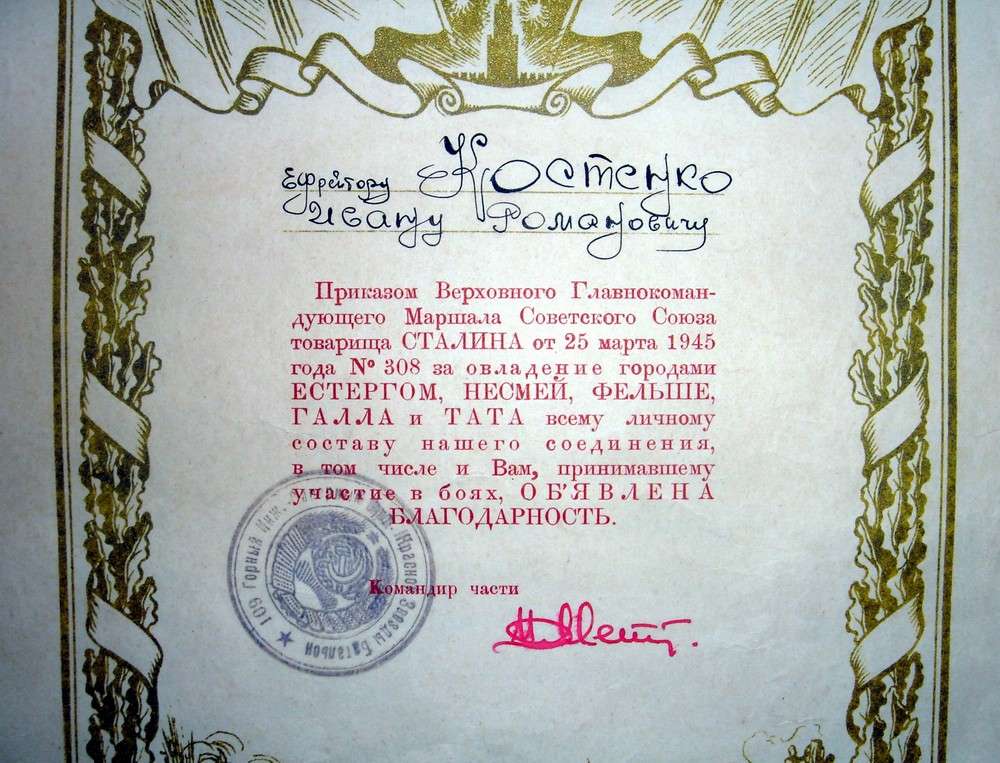 Ефрейтору Костенко
Ивану Романовичу
Приказом Верховного Главнокоман-
дующего Маршала Советского Союза
товарища СТАЛИНА от 25 марта 1945
года № 308 за овладение городами
ЕСТЕРГОМ, НЕСМЕЙ, ФЕЛЬШЕ,
ГАЛЛА и ТАТА всему личному
составу нашего соединения,
в том числе и Вам, принимавшему
участие в боях, ОБ'ЯВЛЕНА
БЛАГОДАРНОСТЬ.
Командир части
109 Горный Инж. Красной Звезды Батальон